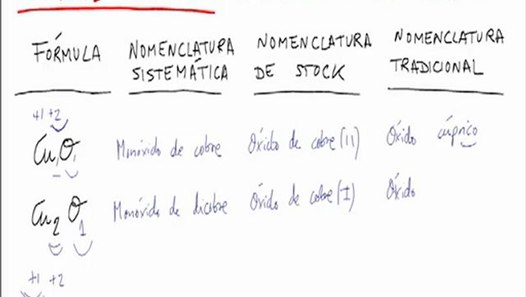 FÓRMULA NOMENCLATURA SISTEMÁTICA NOMENCLATURA DE STOCK NOMENCLATURA TRADICIONAL
+1 +2
Cu₁O₁ Monóxido de cobre Óxido de cobre (II) Óxido cúprico
Cu₂O₁ Monóxido de dicobre Óxido de cobre (I) Óxido
+1 +2